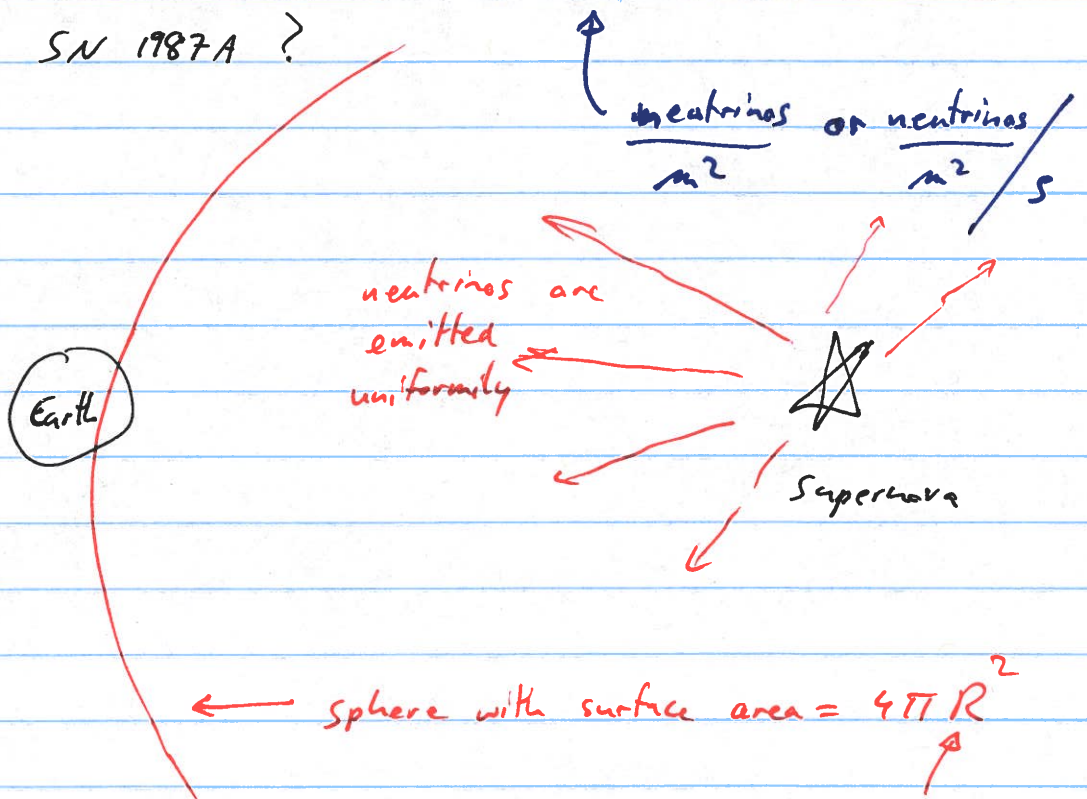 SN 1987A ?
neutrinos/m² or neutrinos/m²/s
neutrinos are
emitted
uniformily
Earth
Supernova
sphere with surface area = 4πR²